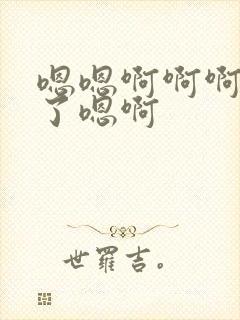 嗯嗯啊啊啊
了嗯啊
世羅吉。